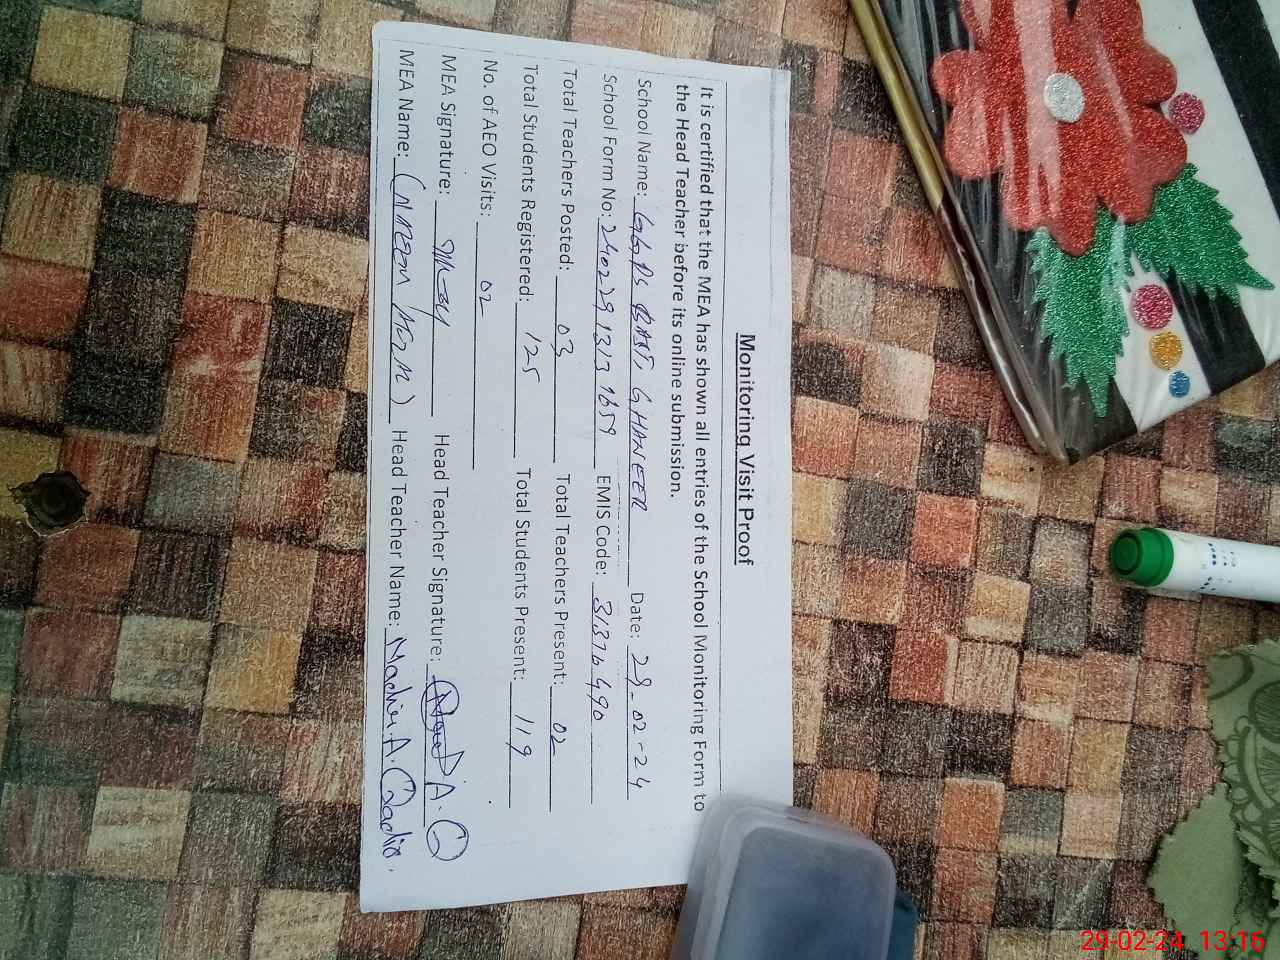 Monitoring Visit Proof
It is certified that the MEA has shown all entries of the School Monitoring Form to
the Head Teacher before its online submission.
School Name: GGPS BASTI GHANEER Date: 29-02-24
School Form No: 240229 1313 1659 EMIS Code: 31376490
Total Teachers Posted: 03 Total Teachers Present: 02
Total Students Registered: 125 Total Students Present: 119
No. of AEO Visits: 02
MEA Signature: Head Teacher Signature: A.Q
MEA Name: Head Teacher Name: A.Qadir.
29-02-24 13:16